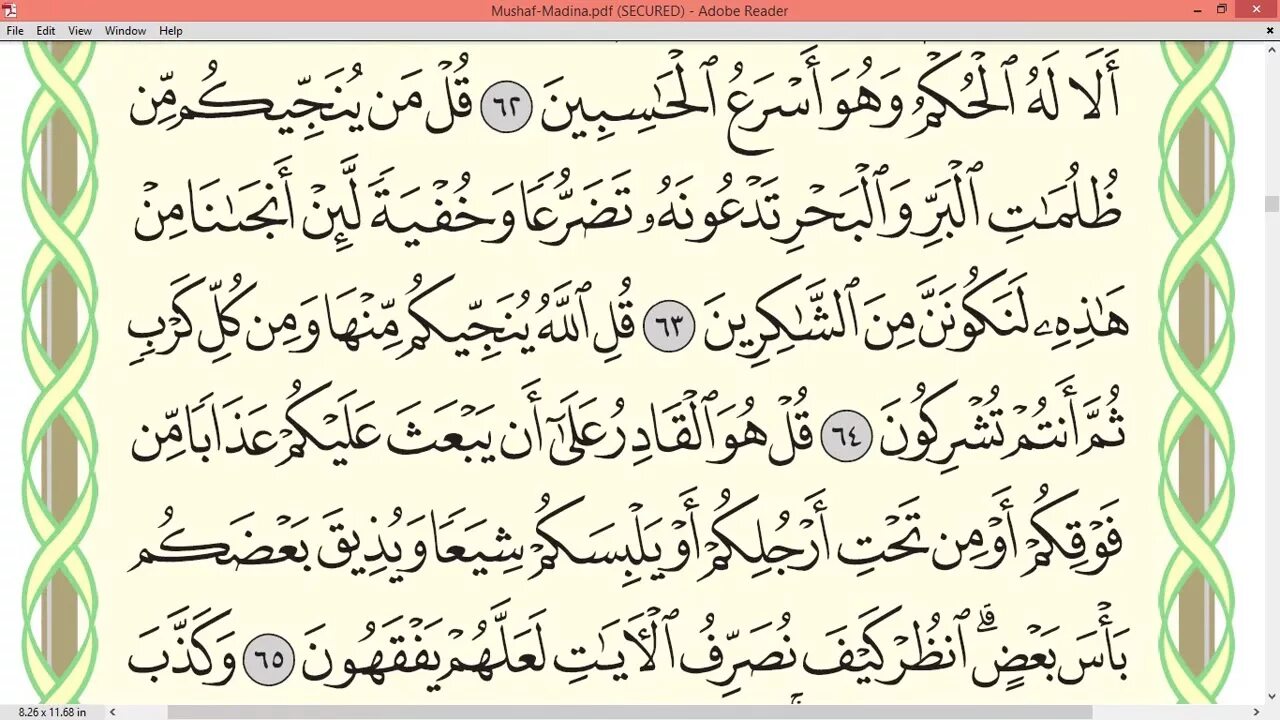 Mushaf-Madina.pdf (SECURED) - Adobe Reader
File Edit View Window Help
أَلَا لَهُ ٱلْحُكْمُ وَهُوَ أَسْرَعُ ٱلْحَـٰسِبِينَ ٦٢ قُلْ مَن يُنَجِّيكُم مِّن
ظُلُمَـٰتِ ٱلْبَرِّ وَٱلْبَحْرِ تَدْعُونَهُۥ تَضَرُّعًا وَخُفْيَةً لَّئِنْ أَنجَىٰنَا مِنْ
هَـٰذِهِۦ لَنَكُونَنَّ مِنَ ٱلشَّـٰكِرِينَ ٦٣ قُلِ ٱللَّهُ يُنَجِّيكُم مِّنْهَا وَمِن كُلِّ كَرْبٍ
ثُمَّ أَنتُمْ تُشْرِكُونَ ٦٤ قُلْ هُوَ ٱلْقَادِرُ عَلَىٰٓ أَن يَبْعَثَ عَلَيْكُمْ عَذَابًا مِّن
فَوْقِكُمْ أَوْ مِن تَحْتِ أَرْجُلِكُمْ أَوْ يَلْبِسَكُمْ شِيَعًا وَيُذِيقَ بَعْضَكُم
بَأْسَ بَعْضٍ ۗ ٱنظُرْ كَيْفَ نُصَرِّفُ ٱلْـَٔايَـٰتِ لَعَلَّهُمْ يَفْقَهُونَ ٦٥ وَكَذَّبَ
8.26 x 11.68 in